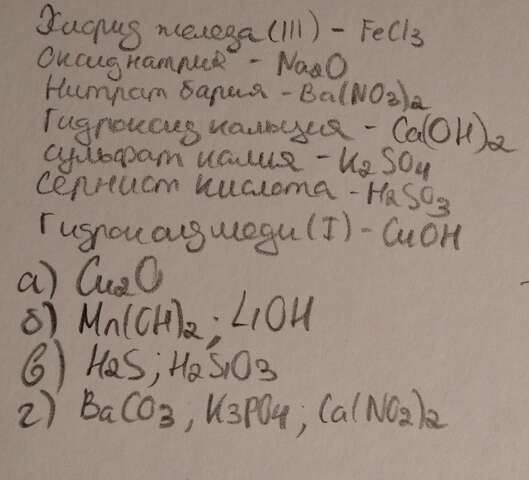 Хлорид железа (III) - FeCl3
Оксид натрия - Na2O
Нитрат бария - Ba(NO3)2
Гидроксид кальция - Ca(OH)2
Сульфат калия - K2SO4
Сернист кислота - H2SO3
Гидроксид меди (I) - CuOH
а) Cu2O
б) Mn(OH)2; LiOH
в) H2S; H2SiO3
г) BaCO3, K3PO4; Ca(NO2)2